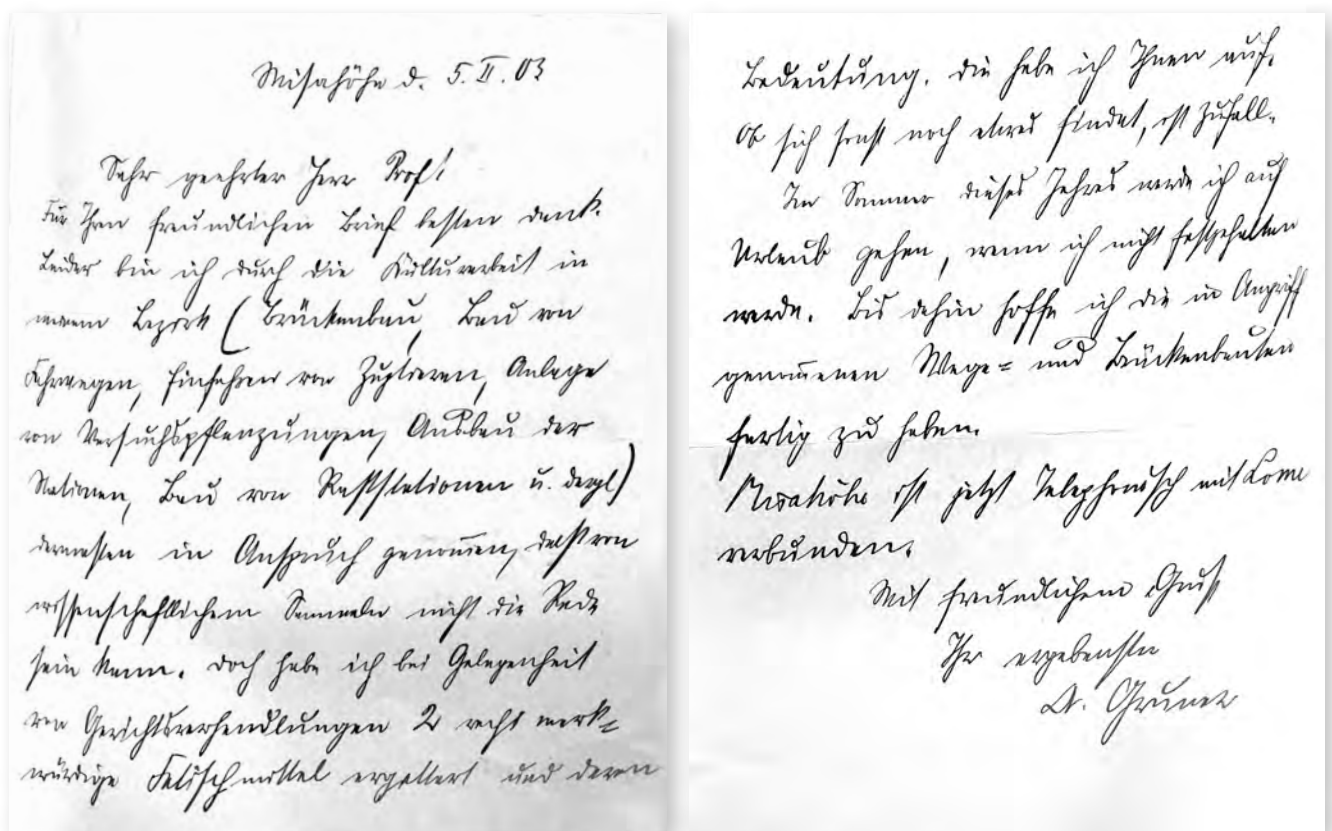 Misahöhe d. 5.II.03
Sehr geehrter Herr Prof!
Für Ihren freundlichen Brief besten Dank.
Leider bin ich durch die Kulturarbeit in
meinem Bezirk (Brückenbau, Bau von
Fahrwegen, Einfahren von Zugtieren, Anlage
von Versuchspflanzungen, Ausbau der
Stationen, Bau von Raststationen u. dergl)
dermassen in Anspruch genommen, dass von
wissenschaftlichem Sammeln nicht die Rede
sein kann. Doch habe ich bei Gelegenheit
von Gerichtsverhandlungen 2 recht merk=
würdige Fetischmittel ergattert und deren
Bedeutung. Die hebe ich Ihnen auf.
Ob sich sonst noch etwas findet, ist Zufall.
Im Sommer dieses Jahres werde ich auf
Urlaub gehen, wenn ich nicht festgehalten
werde. Bis dahin hoffe ich die in Angriff
genommenen Wege= und Brückenbauten
fertig zu haben.
Misahöhe ist jetzt Telephonisch mit Lome
verbunden.
Mit freundlichem Gruß
Ihr ergebenster
Gruner